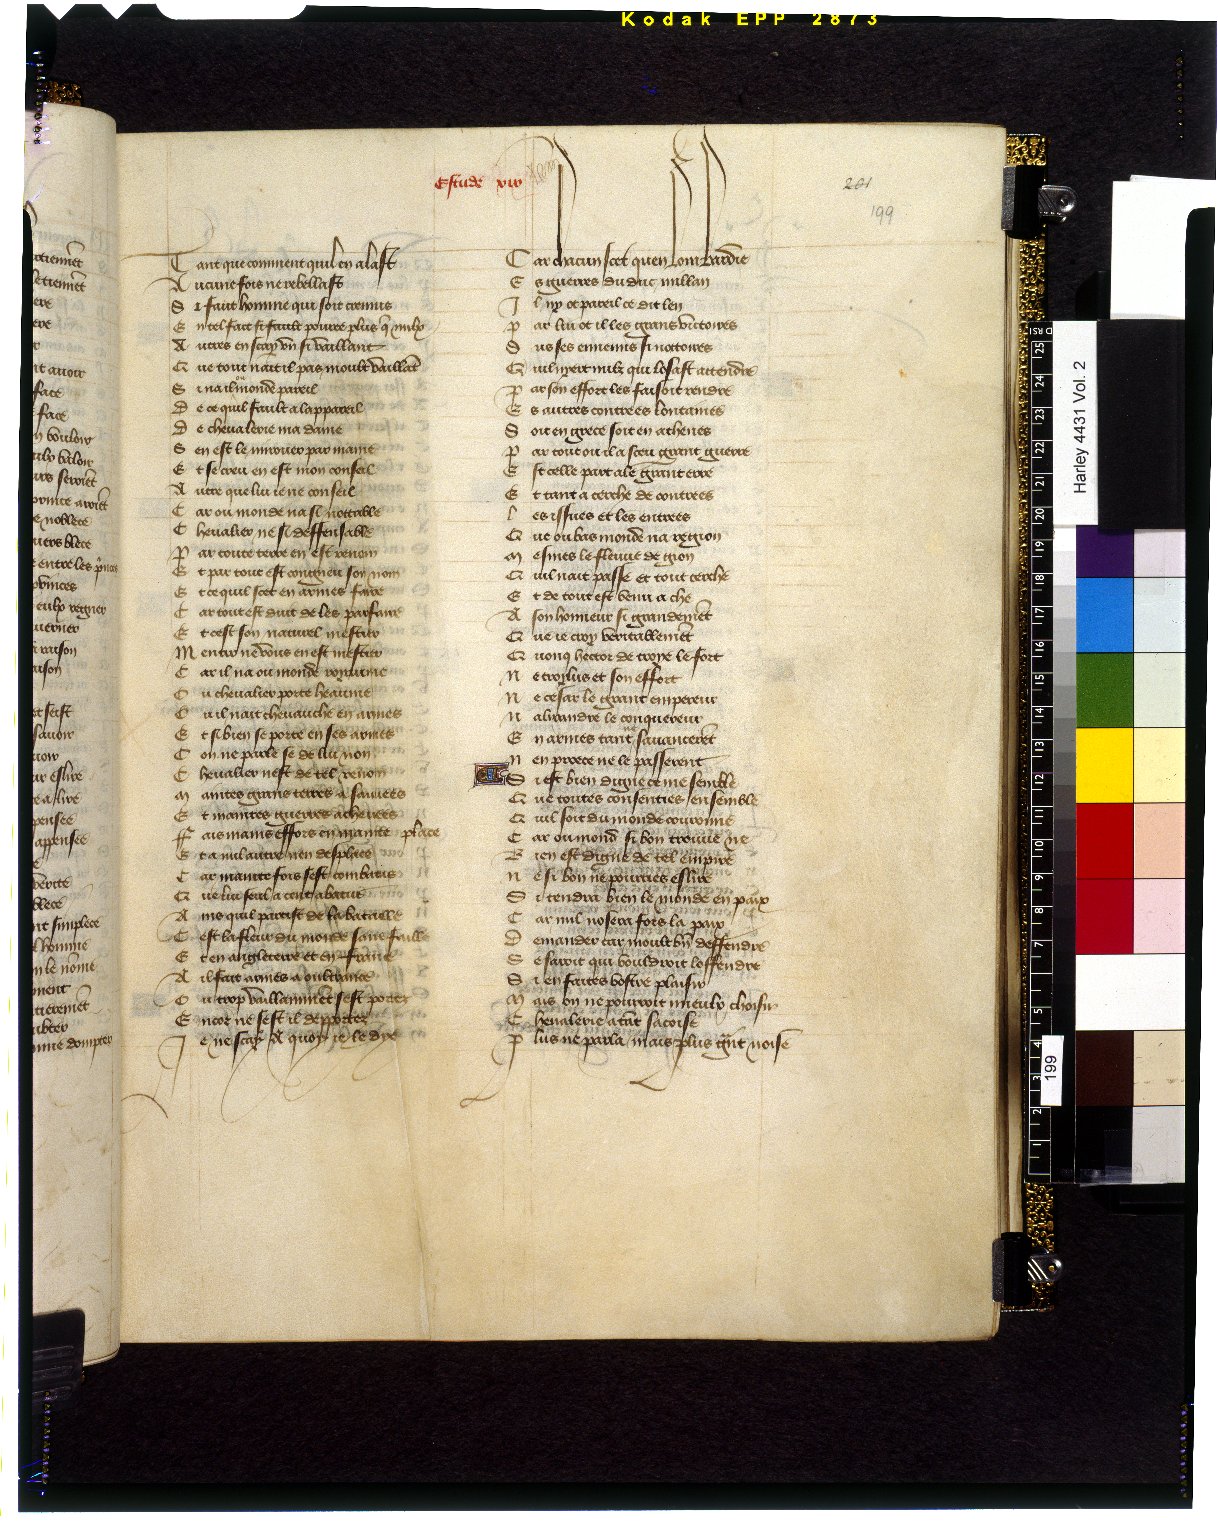 Kodak EPP 2873
Estude xiiij
201
199
Tant que comment quil en alast
Aucune fois ne rebellast
Si fault homme qui soit cremus
En tel fait si fault pouoir plus q̄ nulx
Autres en scay vn si vaillant
Que tout nait il pas moult vaillāt
Si na il ou monde pareil
De ce quil fault a lappareil
De cheualerie ma dame
Sen est le mirouer par mame
Et se creu en est mon conseil
Autre que lui ie ne conseil
Car ou monde na si nottable
Cheualier ne si deffensable
Par toute terre en est renom
Et par tout est congneu son nom
Et ce quil scet en armes faire
Car tout est duit de les parfaire
Et cest son naturel mestier
Mentir ne vous en est mestier
Car il na ou monde royaume
Ou cheualier porte heaume
Ou il nait cheuauche en armes
Et si bien se porte en ses armes
Con ne parle se de lui non
Cheualier nest de tel renom
Maintes grans terres a sauuees
Et maintes guerres acheuees
Fais mains effors en mainte place
Et a nul autre nen desplace
Car mainte fois sest combatus
Que lui seul a cent abatus
Ains quil partist de la bataille
Cest la fleur du monde sanz faille
Et en angleterre et en france
A il fait armes a oultrance
Ou trop vaillammēt sest porter
Encor ne sest il deporter
Je ne scay de quoy ie le dye
Car chacun scet quen lombardie
Es guerres du duc millan
Il ny ot pareil ce dit len
Par lui ot il les grans victoires
Dus ses ennemis si nottoires
Quil nyert nulz qui losast attendre
Par son effort les faisoit rendre
Es autres contrees lontaines
Soit en grece soit en athenes
Par tout ou il a sceu grant guerre
Est celle part ale grant erre
Et tant a cerche de contrees
Les issues et les entrees
Que ou bas monde na region
Mesmes le fleuue de gion
Quil nait passe et tout cerche
Et de tout est venu a che
A son honneur si grandemēt
Que ie croy veritablemēt
Quonq̄ hector de troye le fort
Ne troylus et son effort
Ne cesar le grant empereur
Nalixandre le conquereur
En armes tant ne sauancerēt
Nen proece ne le passerent
Si est bien digne ce me semble
Que toutes consenties ensemble
Quil soit du monde couronne
Car ou mond si bon trouue ne
Bien est digne de tel empire
Ne si bon ne pourries eslire
Si tendra bien le monde en paix
Car nul nosera fors la paix
Demander car moult bn̄ deffendre
Se saroit qui vouldroit loffendre
Si en faites vostre plaisir
Mais on ne pourroit mieulx choisir
Cheualerie atāt sacoise
Plus ne parla mais plus grāt noise
Harley 4431 Vol. 2
199